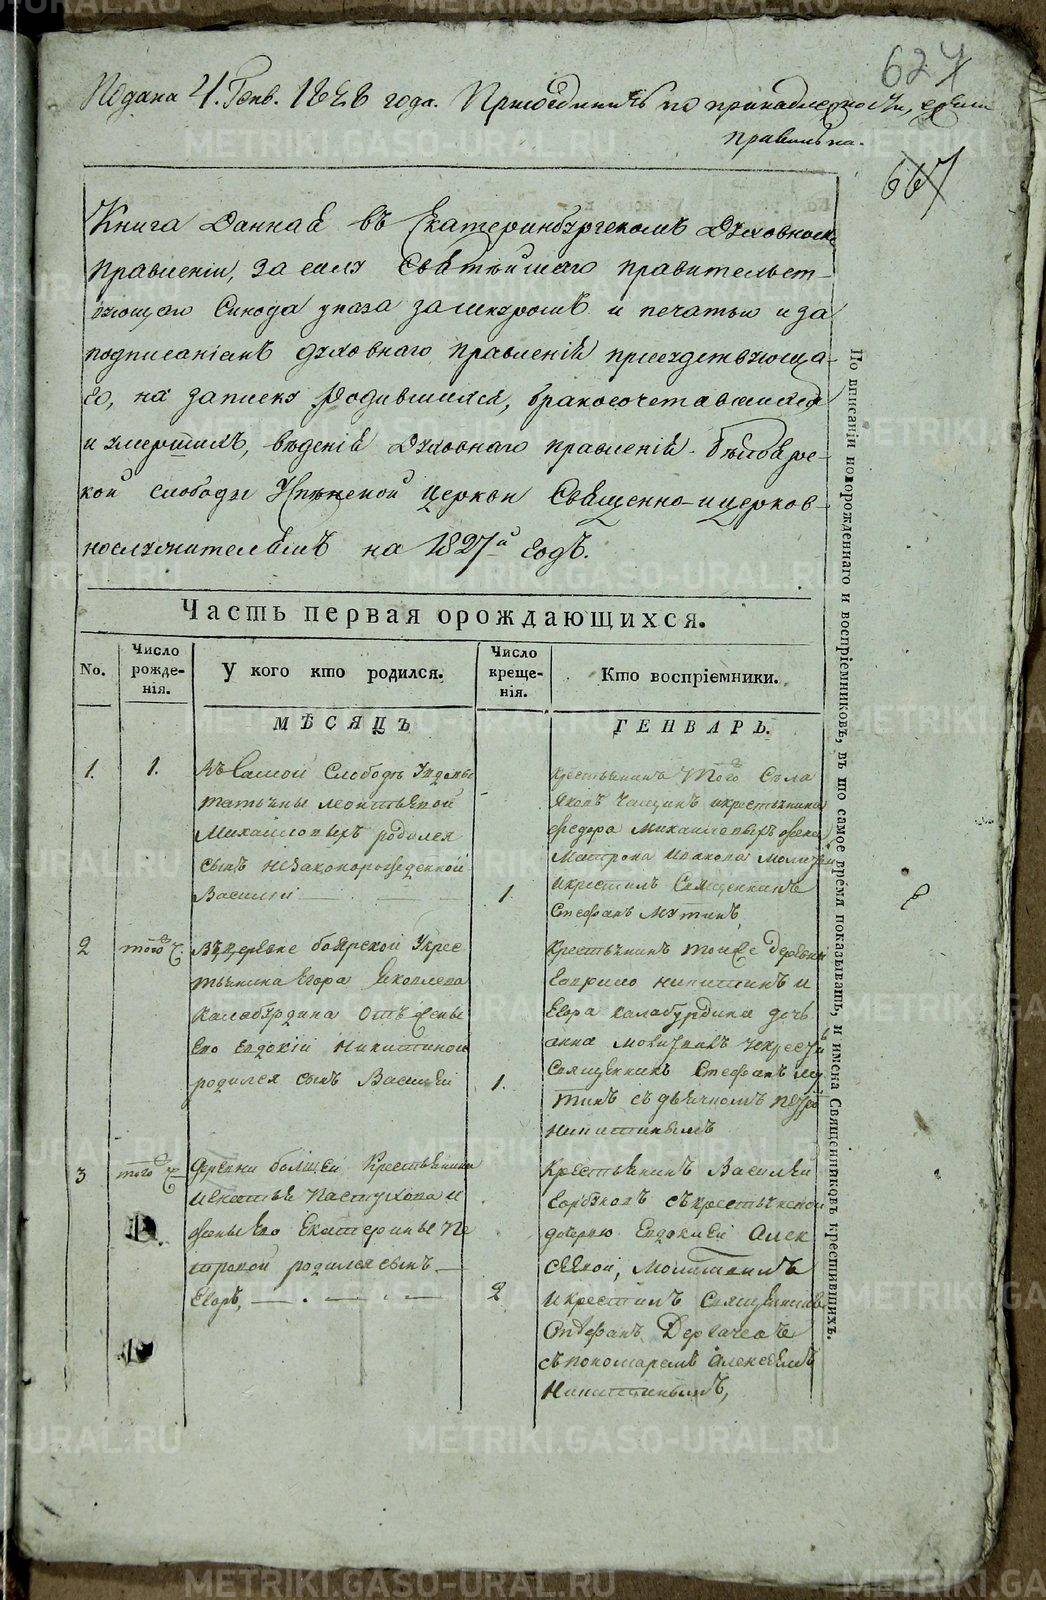 627
Подана 4. Генв. 1828 года. Приобщить по принадлежности, если
правильна.
667
Книга данная въ Екатеринбургскомъ Духовномъ
правленіи, за силу Святѣйшаго правительст-
вующаго Синода указа за шнуромъ и печатью и за
подписаніемъ духовнаго правленія присудствующа-
го, на записку родившихся, бракосочетавшихся
и умершихъ, вѣденія Духовнаго правленія. Бѣлоярс-
кой слободы церкви Священно-и церков-
нослужителямъ на 1827й годъ.
Часть первая орождающихся.
No.
Число рожде-нія.
У кого кто родился.
Число креще-нія.
Кто воспріемники.
МѢСЯЦЪ
ГЕНВАРЬ.
1. 1.
Въ самой Слободѣ У вдовы
татьяны леонтьевой
Михайловыхъ родился
сынъ незаконорожденной
Василій
1.
крестьянинъ того села
Яковъ Чащинъ икрестьянина
федора Михайловыхъ жена
Матрона Ивакова молитвилъ
икрестилъ Священникъ
Стефанъ Мутинъ
2 того ч.
Въ деревне боярской У крес
тьянина Егора Яковлева
Калабурдина отъ жены
его Евдокіи Никитиной
родился сынъ Василей
1.
Крестьянинъ тойже деревни
Гаврило никитинъ и
Егора калабурдина дочь
анна молитвилъ икрестилъ
Священникъ Стефанъ му
тинъ съ дьячкомъ петромъ
Никитинымъ
3 того ч.
деревни большей Крестьянина
Игнатья Пастухова и
жены его Екатерины пе
тровой родился сынъ
Егоръ,
2
Крестьянинъ Василей
съкрестьянской
дочерью Евдокией Алек
сеевой, молитвилъ
икрестилъ Священникъ
Стефанъ Дергачевъ
съ пономаремъ Алексеемъ
Никитинымъ,
По вписаніи новорожденнаго и воспріемниковъ, въ то самое время показывать, и имена Священниковъ крестившихъ.
METRIKI.GASO-URAL.RU